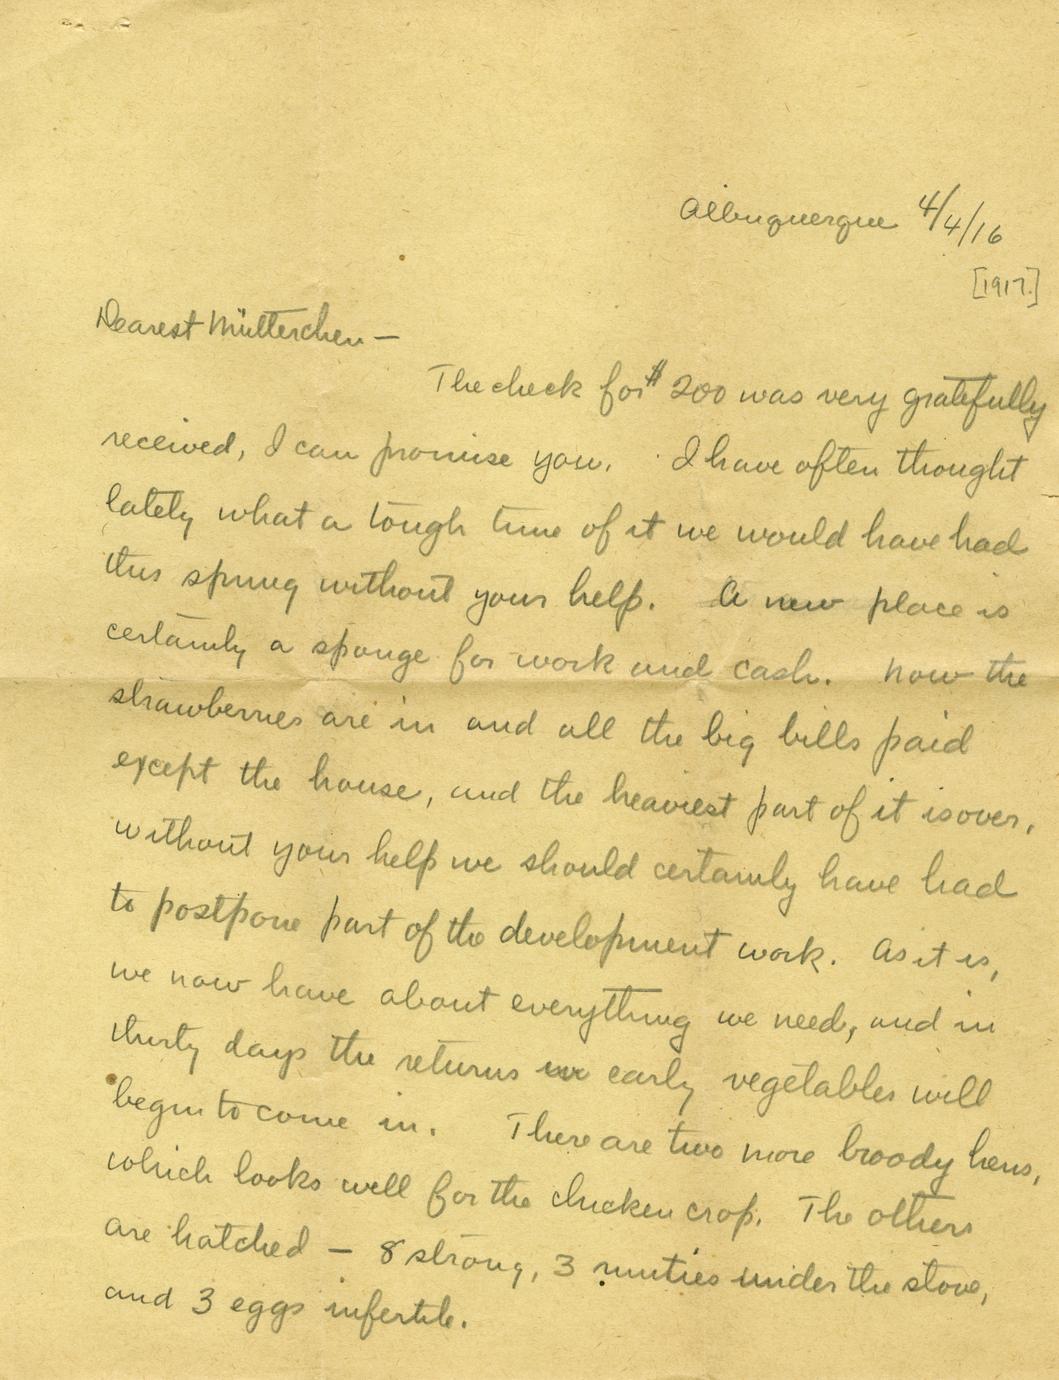 Albuquerque 4/4/16
[1917.]
Dearest Mütterchen —
The check for $200 was very gratefully
received, I can promise you. I have often thought
lately what a tough time of it we would have had
this spring without your help. A new place is
certainly a sponge for work and cash. Now the
strawberries are in and all the big bills paid
except the house, and the heaviest part of it is over,
without your help we should certainly have had
to postpone part of the development work. As it is,
we now have about everything we need, and in
thirty days the returns in early vegetables will
begin to come in. There are two more broody hens,
which looks well for the chicken crop. The others
are hatched — 8 strong, 3 runties under the stove,
and 3 eggs infertile.